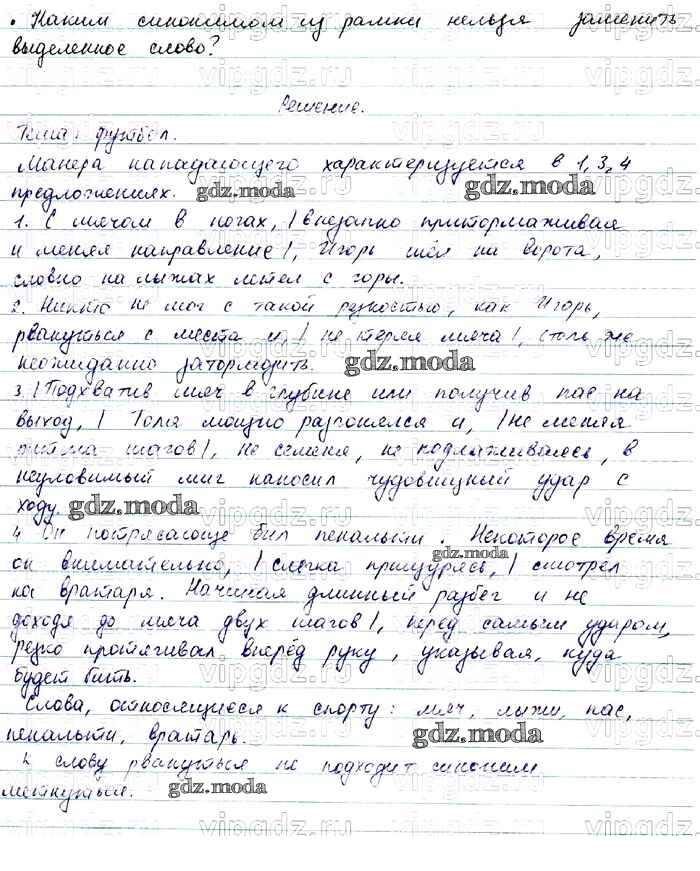 • Каким синонимом из рамки нельзя заменить
выделенное слово?
Решение.
Тема: футбол.
Манера нападающего характеризуется в 1, 3, 4
предложениях. gdz.moda gdz.moda
1. С мячом в ногах, | внезапно притормаживая
и меняя направление |, Игорь шёл на ворота,
словно на лыжах летел с горы.
2. Никто не мог с такой резкостью, как Игорь,
рвануться с места и, | не теряя мяча |, столь же
неожиданно затормозить. gdz.moda
3. | Подхватив мяч в глубине или получив пас на
выход, | Толя мощно разгонялся и, | не меняя
ритма шагов |, не семеня, не подлаживаясь, в
неуловимый миг наносил чудовищный удар с
ходу. gdz.moda
4. Он потрясающе бил пенальти. Некоторое время
gdz.moda
он внимательно, | слегка прищурясь, | смотрел
на вратаря. Начиная длинный разбег и не
доходя до мяча двух шагов |, перед самым ударом,
резко протягивал вперёд руку, указывая, куда
будет бить.
Слова, относящиеся к спорту: мяч, лыжи, пас,
пенальти, вратарь. gdz.moda
К слову рвануться не подходит синоним
метнуться. gdz.moda